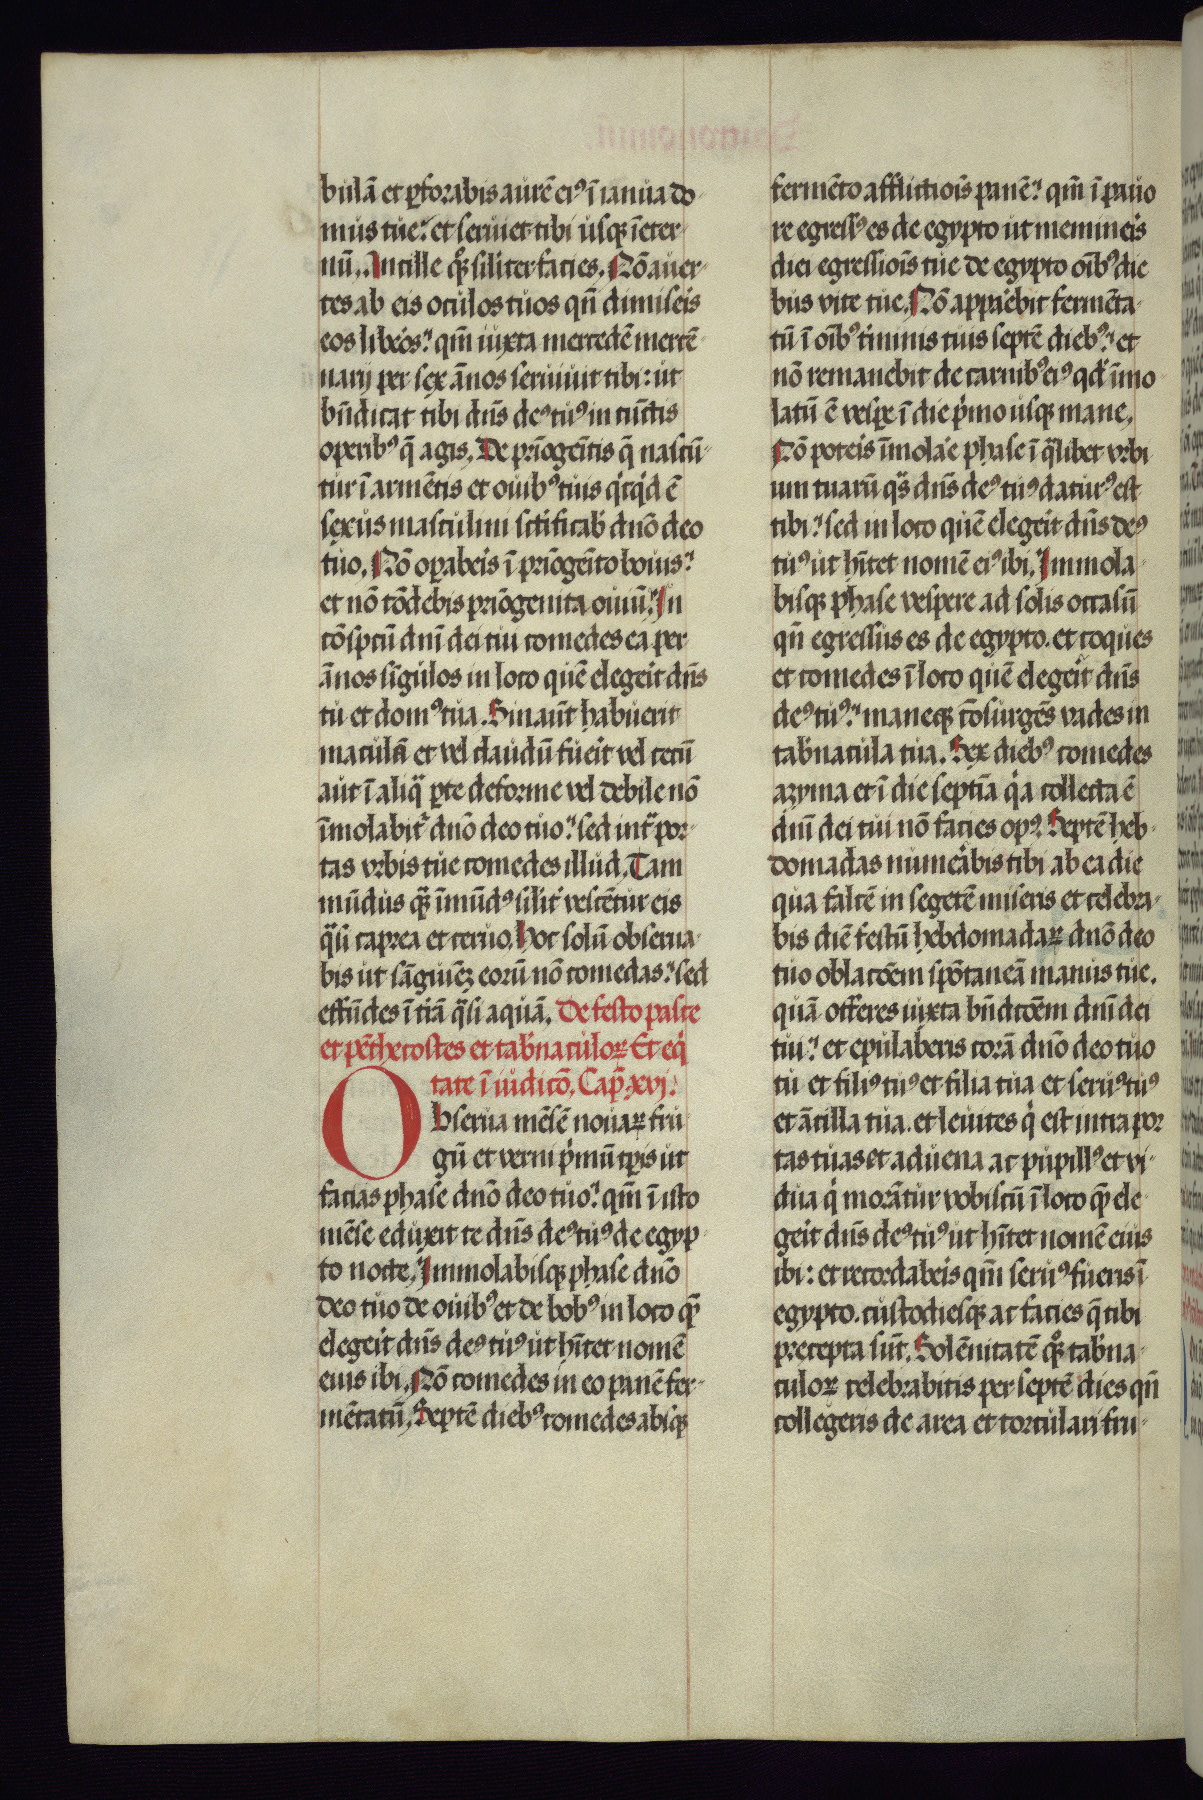 bulā et ꝑforabis aurē ei⁹ ī ianua do-
mus tue: et seruiet tibi usqꝫ īeter-
nū. Ancille qͦqꝫ siliter facies. Nō auer-
tes ab eis oculos tuos qn̄ dimiseris
eos lib̄os: qm̄ iuxta mercedē mercē-
narij per sex ānos seruiuit tibi: ut
bn̄dicat tibi dn̄s de⁹ tu⁹ in cunctis
operib⁹ q̄ agis. De prīogēitis q̄ nascū-
tur ī armētis et ouib⁹ tuis qͥcqͥd ē
sexus masculini sctificab' dnō deo
tuo. Nō oꝑabeis ī prīogēito bouis:
et nō tōdebis prīogenita ouiū. In
cōspcū dnī dei tui comedes ea per
ānos sīgulos in loco quē elegeīt dn̄s
tu et dom⁹ tua. Sin aūt habuerit
maculā et vel claudū fueīt vel cecū
aut ī aliqͣ ꝑte deforme vel debile nō
īmolabitͬ dnō deo tuo: sed intͣ por-
tas vrbis tue comedes illud. Tam
mūdus qͣꝫ īmūd⁹ silit' vescētur eis
qͣsi caprea et ceruo. Hoc solū obserua-
bis ut sāguinē eoꝝ nō comedas: sed
effūdes ī trā qͣsi aquā. De festo pasce
et pēthecostes et tab'naculoꝝ Et eqͥ
tate ī iudicō. Cap. xvi.
Obserua mēsē nouaꝝ fru
gū et verni pͥmū tꝑis ut
facias phase dnō deo tuo: qm̄ ī isto
mēse eduxit te dn̄s de⁹ tu⁹ de egyp-
to nocte. Immolabisqꝫ phase dnō
deo tuo de ouib⁹ et de bob⁹ in loco quē
elegeīt dn̄s de⁹ tu⁹ ut hītet nomē
eius ibi. Nō comedes in eo panē fer-
mētatū. Septē dieb⁹ comedes absqꝫ
fermēto afflictiōis panē: qm̄ ī pauo
re egress⁹ es de egypto ut memineīs
diei egressiōis tue de egypto oīb⁹ die
bus vite tue. Nō appaēbit fermēta-
tū ī oīb⁹ t'minis tuis septē dieb⁹: et
nō remanebit de carnib⁹ ei⁹ qd̄ īmo
latū ē vesꝑe ī die pͥmo usqꝫ mane.
Nō poteis īmolae phase ī qͣlibet vrbi
um tuarū qͣs dn̄s de⁹ tu⁹ datur⁹ est
tibi: sed in loco quē elegeīt dn̄s de⁹
tu⁹ ut hītet nomē ei⁹ ibi. Immola-
bisqꝫ phase vespere ad solis occasū
qn̄ egressus es de egypto. et coques
et comedes ī loco quē elegeīt dn̄s
de⁹ tu⁹: maneqꝫ cōsurgēs vades in
tab'nacula tua. Sex dieb⁹ comedes
azyma et ī die septīa qͥa collecta ē
dnī dei tui nō facies op⁹. Septē heb-
domadas numeabis tibi ab ea die
qua falcē in segetē miseris et celebra-
bis diē festū hebdomadaꝝ dnō deo
tuo oblacōem spōtaneā manus tue.
quā offeres iuxta bn̄dcōem dnī dei
tui: et epulaberis corā dnō deo tuo
tu et fili⁹ tu⁹ et filia tua et seru⁹ tu⁹
et ācilla tua. et leuites qͥ est intra por
tas tuas et aduena ac pupill⁹ et vi-
dua qͥ morātur vobiscū ī loco quē ele-
geīt dn̄s de⁹ tu⁹ ut hītet nomē eius
ibi: et recordabeis qm̄ seru⁹ fueris ī
egypto. custodiesqꝫ ac facies q̄ tibi
precepta sūt. Solēnitatē qͦqꝫ tab'na-
culoꝝ celebrabitis per septē dies qn̄
collegeris de area et torculari fru-